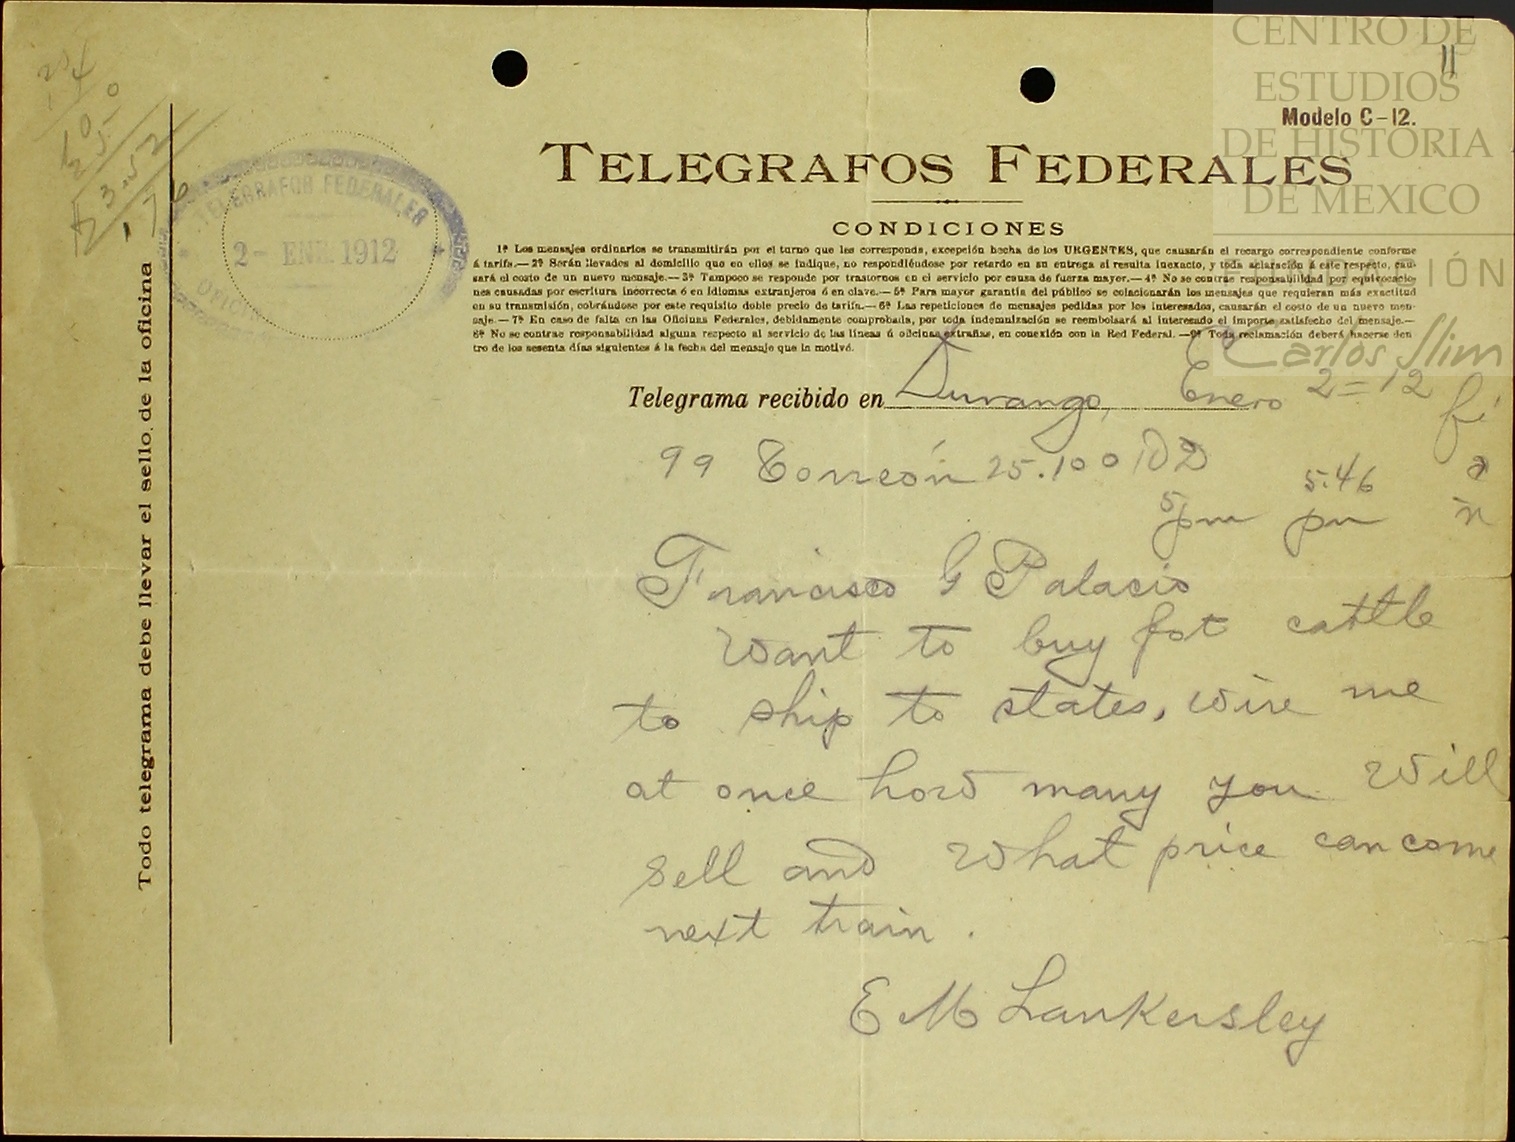 CENTRO DE
ESTUDIOS
DE HISTORIA
DE MEXICO
Carlos Slim
11
Modelo C-12.
TELEGRAFOS FEDERALES
CONDICIONES
1ª Los mensajes ordinarios se transmitirán por el turno que les corresponde, excepción hecha de los URGENTES, que causarán el recargo correspondiente conforme
á tarifa.—2ª Serán llevados al domicilio que en ellos se indique, no respondiéndose por retardo en su entrega si resulta inexacto, y toda aclaración á este respecto, cau-
sará el costo de un nuevo mensaje.—3ª Tampoco se responde por trastornos en el servicio por causa de fuerza mayor.—4ª No se contrae responsabilidad por equivocacio-
nes causadas por escritura incorrecta ó en idiomas extranjeros ó en clave.—5ª Para mayor garantía del público se colacionarán los mensajes que requieran más exactitud
en su transmisión, cobrándose por este requisito doble precio de tarifa.—6ª Las repeticiones de mensajes pedidas por los interesados, causarán el costo de un nuevo men-
saje.—7ª En caso de falta en las Oficinas Federales, debidamente comprobada, por toda indemnización se reembolsará al interesado el importe satisfecho del mensaje.—
8ª No se contrae responsabilidad alguna respecto al servicio de las líneas ú oficinas extrañas, en conexión con la Red Federal.—9ª Toda reclamación deberá hacerse den
tro de los sesenta días siguientes á la fecha del mensaje que la motivó.
TELEGRAFOS FEDERALES
2- ENE. 1912
Todo telegrama debe llevar el sello de la oficina
Telegrama recibido en Durango, Enero 2=12
99 Torreón 25.100 D
5pm 5.46 pm
Francisco G Palacio
Want to buy fat cattle
to ship to states, wire me
at once how many you will
sell and what price can come
next train.
E M Lankersley